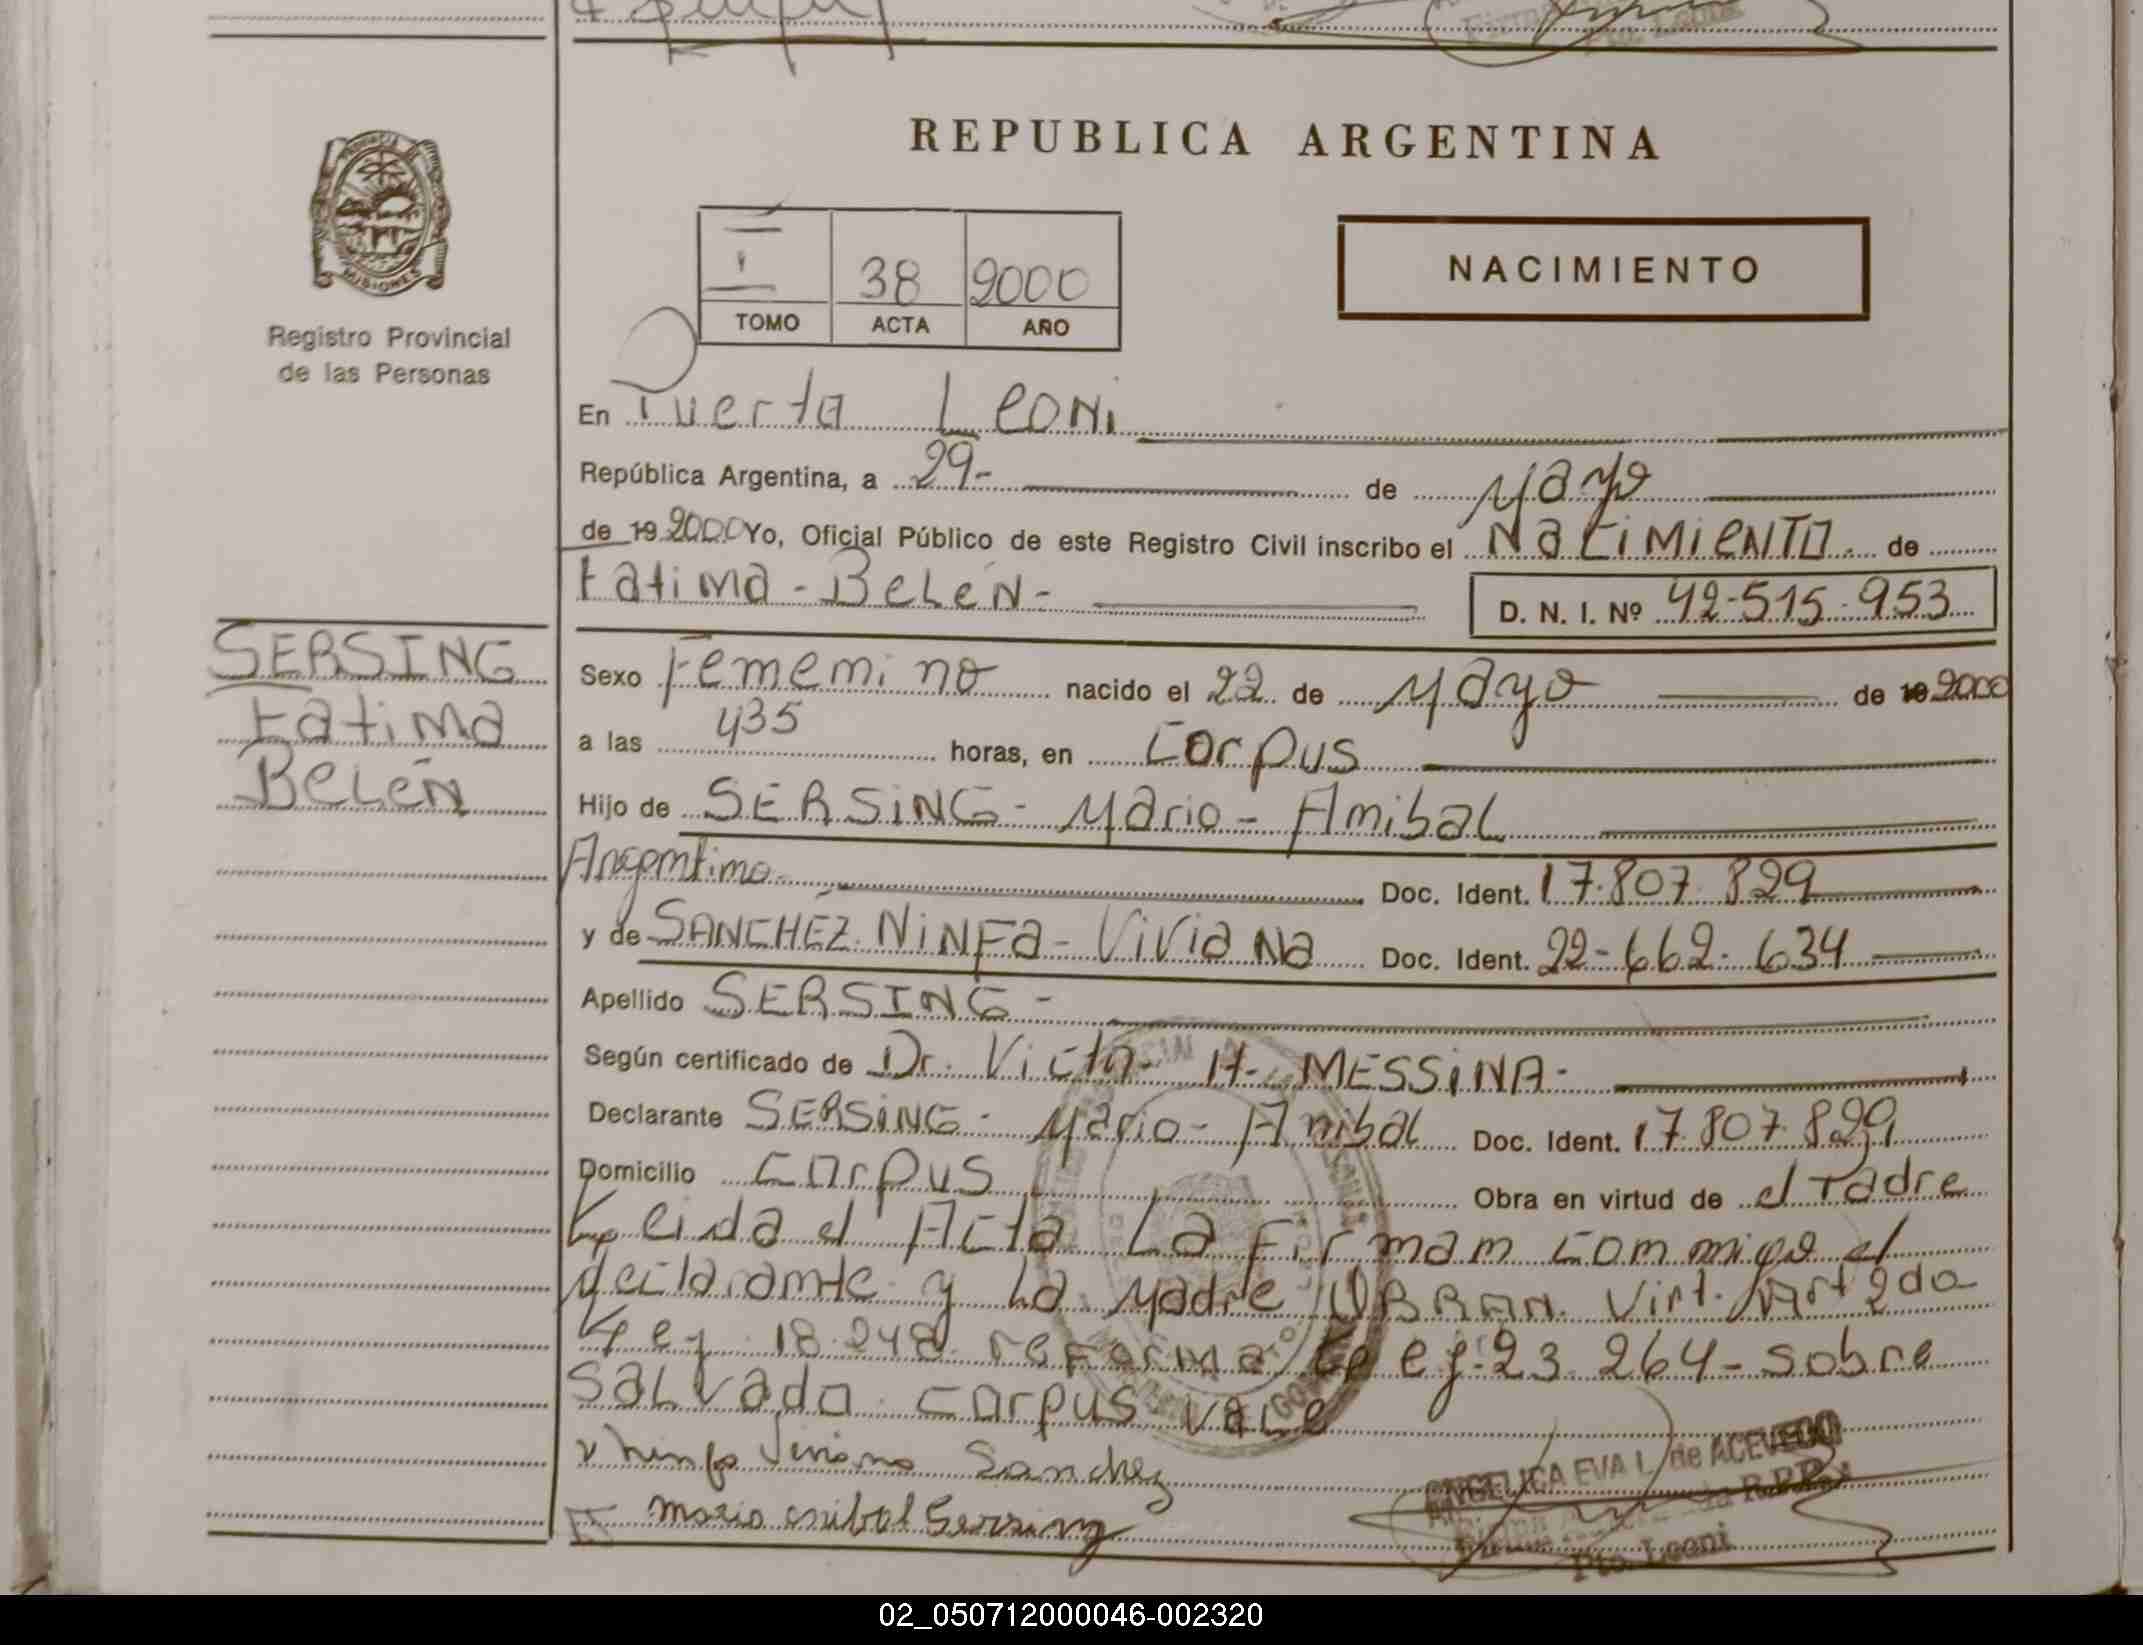 REPUBLICA ARGENTINA
PROVINCIA DE
MISIONES
Registro Provincial
de las Personas
I 38 2000
TOMO ACTA AÑO
NACIMIENTO
En Puerto Leoni
República Argentina, a 29- de Mayo
de 19 2000 Yo, Oficial Público de este Registro Civil inscribo el Nacimiento de
Fatima - Belén - D. N. I. Nº 42-515-953
SERSING
Fatima
Belén
Sexo Femenino nacido el 22 de Mayo de 19 2000
a las 435 horas, en Corpus
Hijo de SERSING - Mario - Anibal
Argentino Doc. Ident. 17.807.829
y de SANCHEZ NiNFa - ViViaNa Doc. Ident. 22-662-634
Apellido SERSING -
Según certificado de Dr. Victor H. MESSiNA -
Declarante SERSiNG - Mario - Anibal Doc. Ident. 17.807.829
Domicilio Corpus Obra en virtud de el Padre
Leida el Acta La Firman conmigo el
declarante y La Madre OBRAN. Virt. Art 2do
Ley 18.248 reforma Ley 23.264 - sobre
salvado Corpus vale
Ninfa Viviana Sanchez
mario anibal Sersing
ANGELICA EVA L. de ACEVEDO
Pto. Leoni
02_050712000046-002320